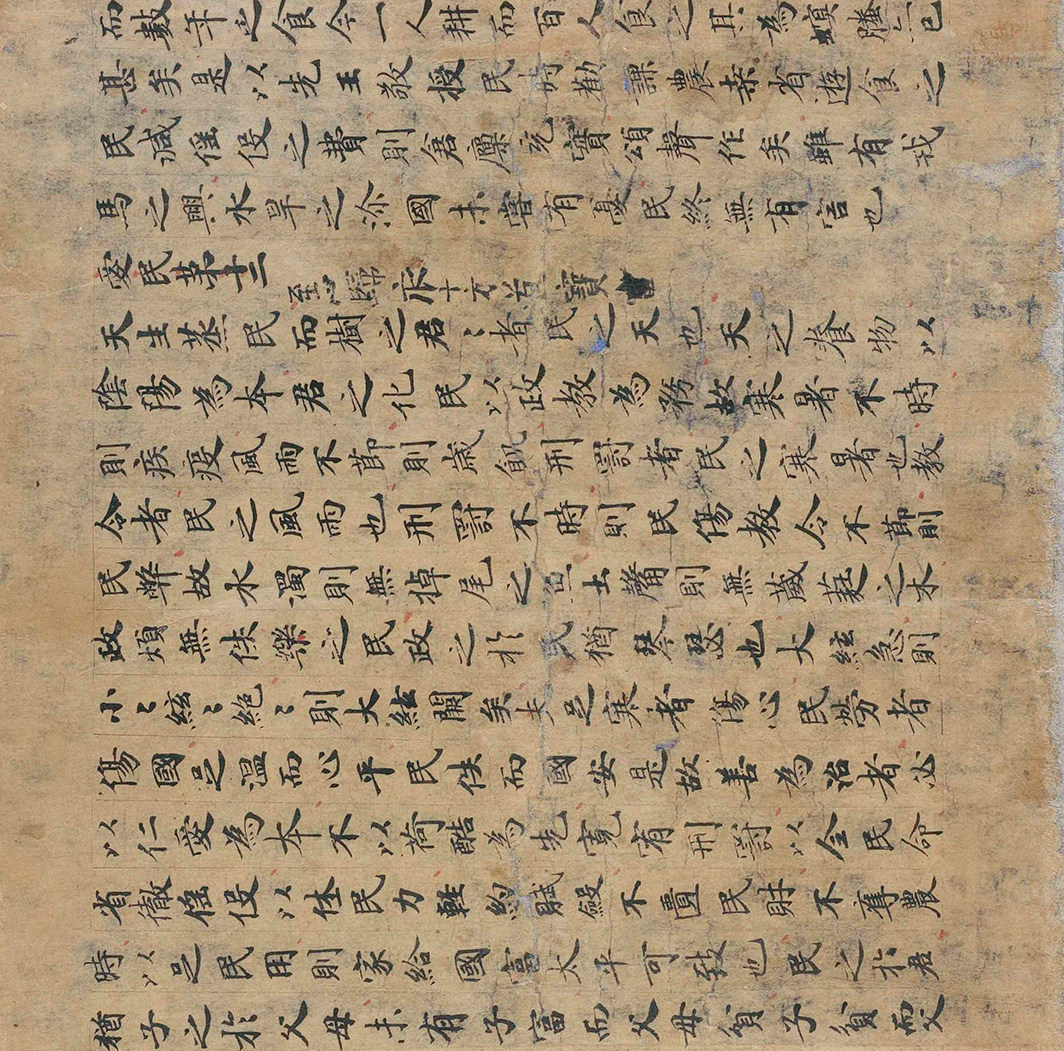 而數年之食今一人耕而百人食之其為螟螣已
甚矣是以先王敬授民時勸課農桒省遊食之
民減傜伇之費則倉廩充實頌聲作矣雖有戎
馬之興水旱之沴國未嘗有憂民終無有害也
愛民第十二 至心歸十方寶
天生蒸民而樹之君〻者民之天也天之養物以
陰陽為本君之化民以政教為務故寒暑不時
則疾疫風雨不節則歲飢刑罰者民之寒暑也教
令者民之風雨也刑罰不時則民傷教令不節則
民弊故水濁則無掉尾之魚土墝則無葳蕤之木
政煩無佚樂之民政之於民猶琴瑟也大絃急則
小〻絃〻絕〻則大絃闕矣夫足寒者傷心民勞者
傷國足溫而心平民佚而國安是故善為治者必
以仁愛為本不以苛酷為先寬宥刑罰以全民命
省徹傜伇以休民力輕約賦斂不匱民財不奪農
時以足民用則家給國富太平可致也民之於君
猶子之於父母未有子富而父母貧子貧而父